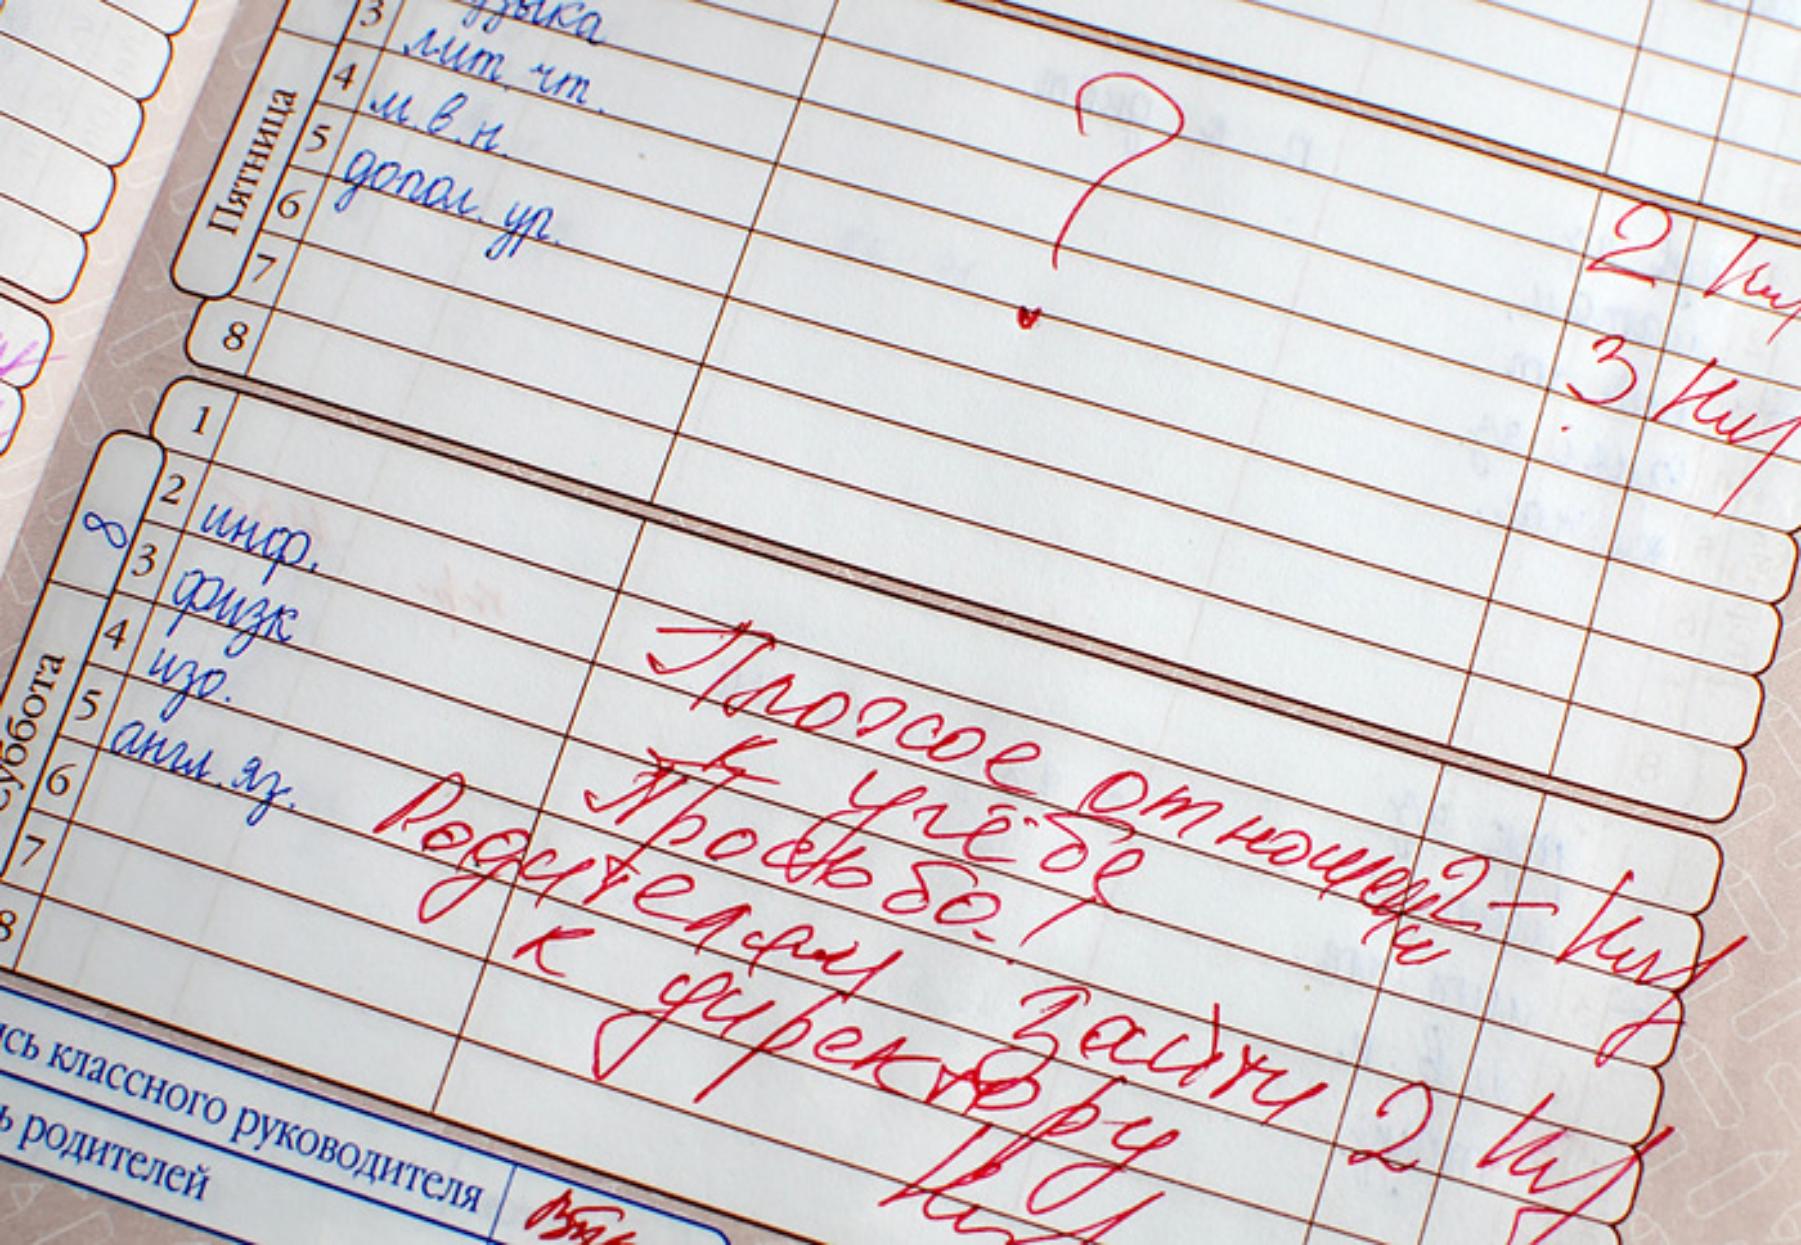 3
4 лит. чт.
5 м.в.н.
6 допол. ур.
7
8
Пятница
?
2
3
1
2 инф.
3 физк
4 изо.
5 англ. яз.
6
7
8
суббота
Плохое отношение 2-
к учёбе
Просьба!
Родителям зайти
к директору
2
сь классного руководителя
ь родителей